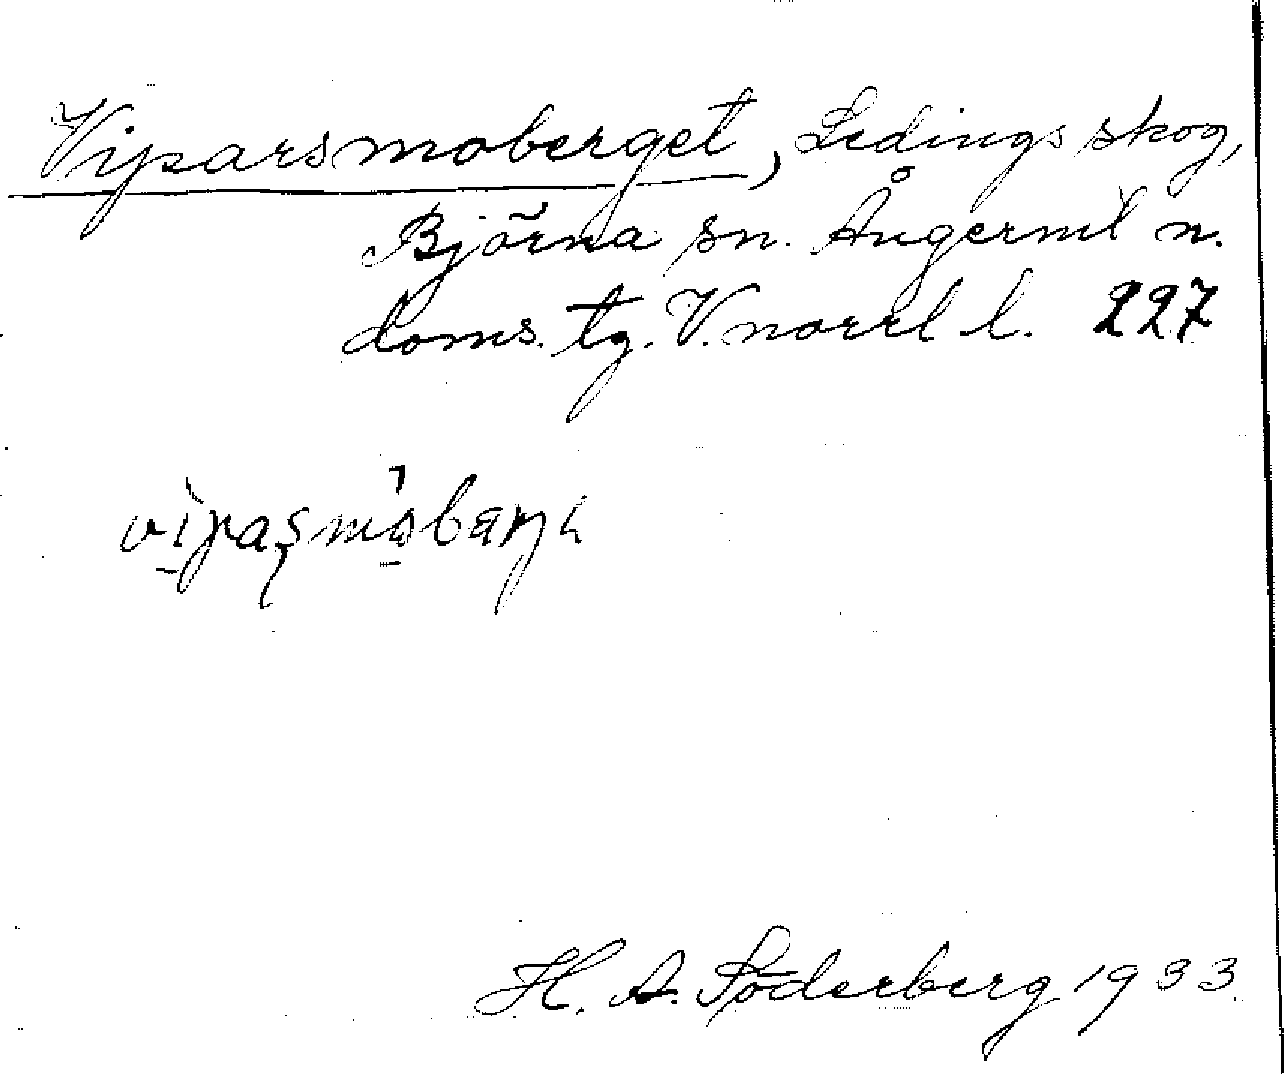 Viparsmoberget, Ledings skog,
Björna sn. Ångerml n.
doms. tg. V. norrl l. 227
vipaşmobærji
H. A. Söderberg 1933.